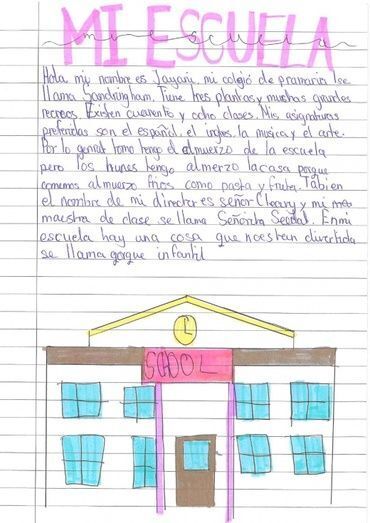 MI ESCUELA
mi escuela
Hola mi nombre es Jayani, mi colegio de pramaria se
llama Sandringham. Tiene tres plantas y muchas grandes
recreos. Existen cuarenta y ocho clases. Mis asignaturas
preferidas son el español, el ingles, la musica y el arte.
Por lo general tomo tengo el almuerzo de la escuela
pero los lunes tengo almerzo la casa porque
comemos almuerzo frios como pasta y fruta. Tabien
el nombre de mi director es señor Cleary y mi
maestra de clase se llama Señorita. En mi
escuela hay una cosa que no es tan divertida
se llama gorque infantil
SCHOOL